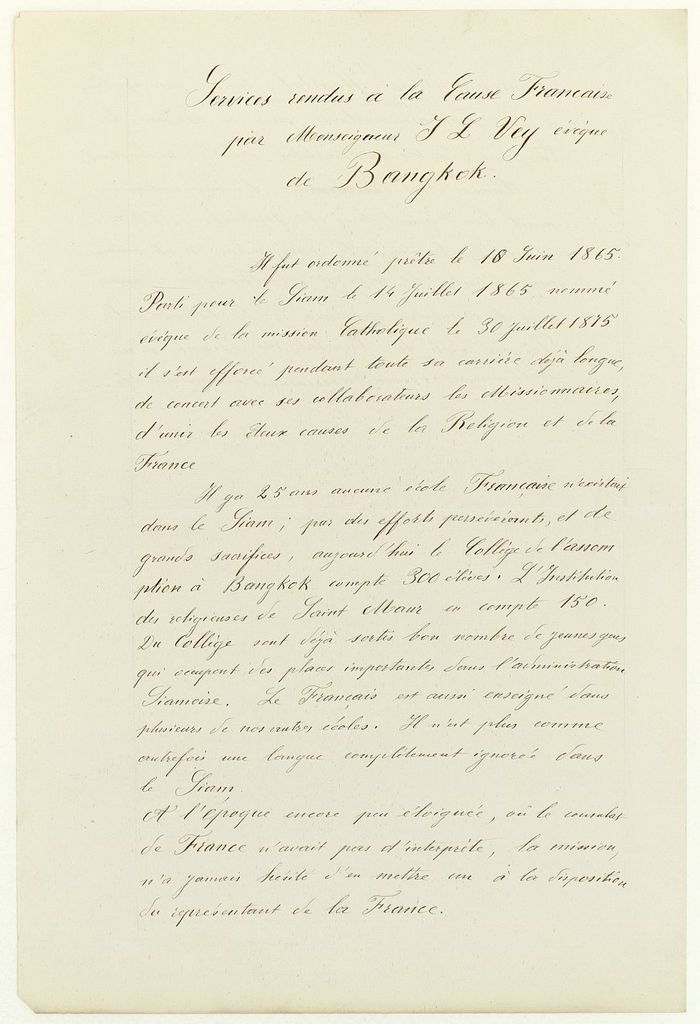 Services rendus à la Cause Francaise
par Monseigneur J L Vey évêque
de Bangkok.
Il fut ordonné prêtre le 10 Juin 1865.
Parti pour le Siam le 14 Juillet 1865 nommé
évêque de la mission Catholique le 30 Juillet 1875
il s'est efforcé pendant toute sa carrière déjà longue,
de concert avec ses collaborateurs les Missionnaires,
d'unir les deux causes de la Religion et de la
France
Il y a 25 ans aucune école Française n'existait
dans le Siam; par des efforts persévérants, et de
grands sacrifices, aujourd'hui le Collège de l'assom
ption à Bangkok compte 300 élèves. L'Institution
des religieuses de Saint Maur en compte 150.
Du Collège sont déjà sortis bon nombre de jeunes gens
qui occupent des places importantes dans l'administration
Siamoise. Le Français est aussi enseigné dans
plusieurs de nos autres écoles. Il n'est plus comme
autrefois une langue complètement ignorée dans
le Siam.
A l'époque encore peu éloignée, où le consulat
de France n'avait pas d'interprète, la mission,
n'a jamais hésité d'en mettre un à la disposition
du représentant de la France.